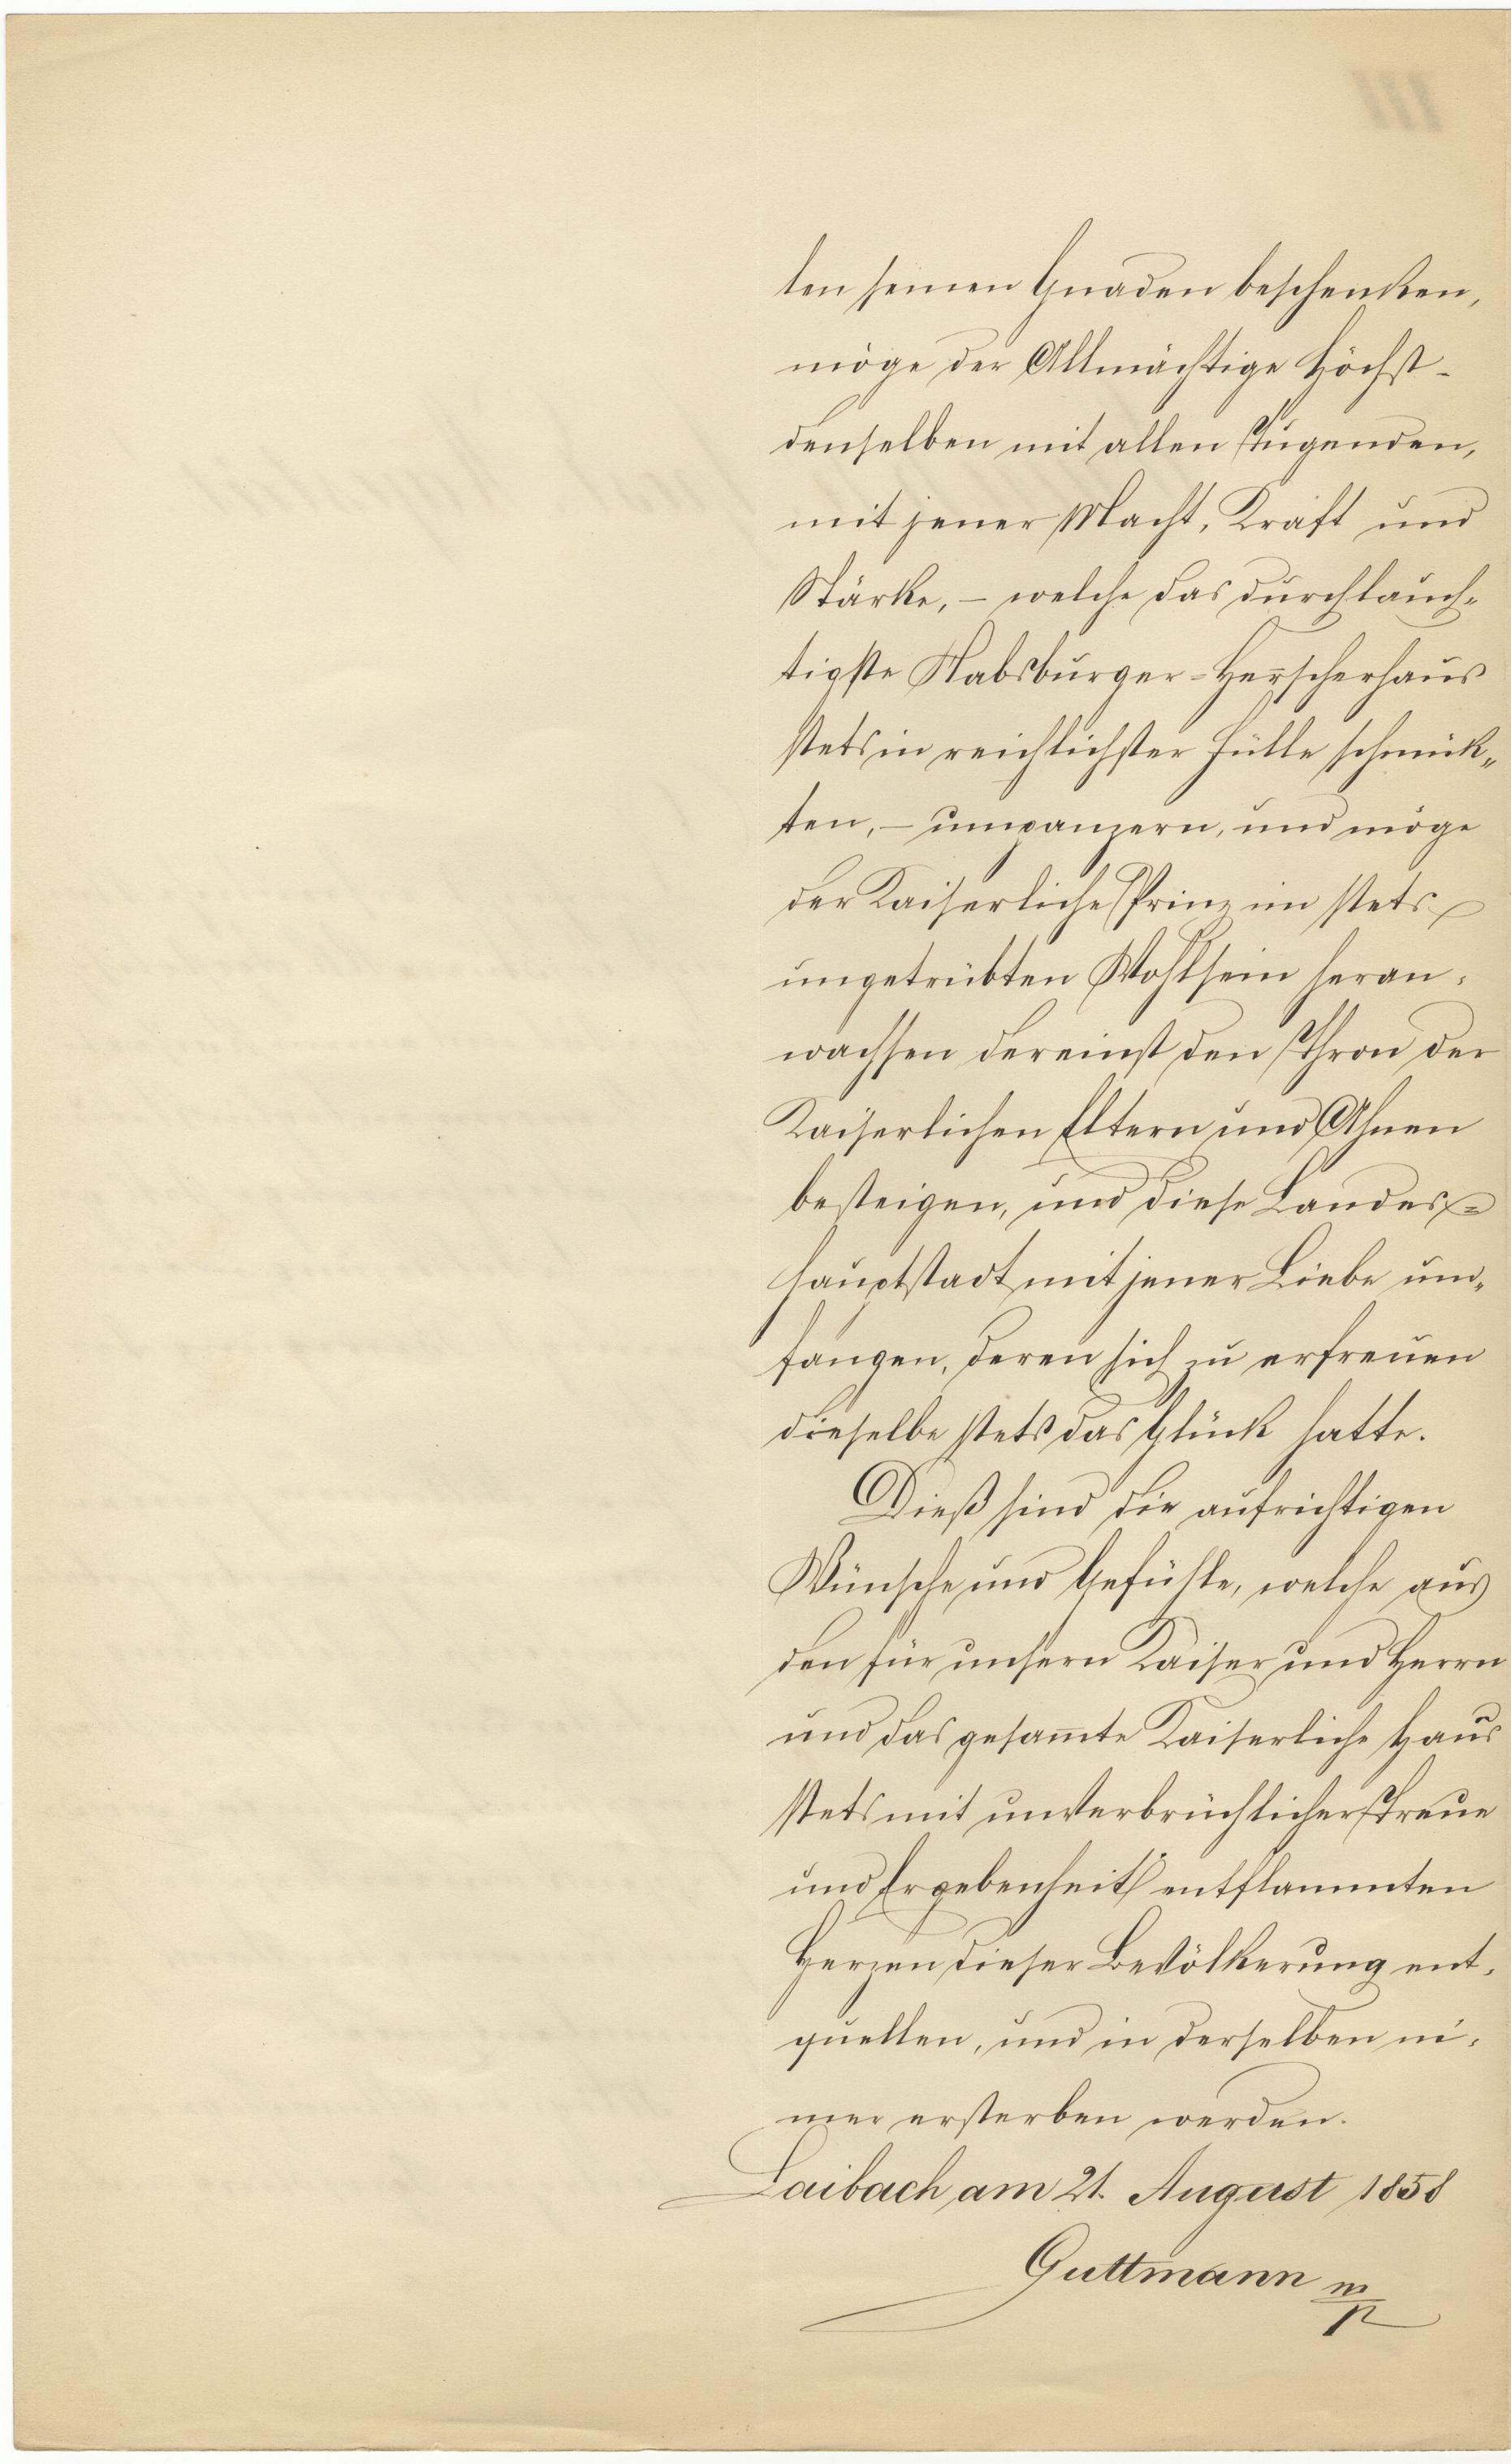 ten seinen Gnaden beschenken,
möge der Allmächtige Höchst-
denselben mit allen Tugenden,
mit jener Macht, Kraft und
Stärke, – welche das durchlauch-
tigste Habsburger-Herscherhaus
stets in reichlichster Fülle schmück-
ten, – umpanzern, und möge
der Kaiserliche Prinz im stets
ungetrübten Wohlsein heran-
wachsen dereinst den Thron der
Kaiserlichen Eltern und Ahnen
besteigen, und diese Landes-
hauptstadt mit jener Liebe um-
fangen, deren sich zu erfreuen
dieselbe stets das Glück hatte.
Dieß sind die aufrichtigen
Wünsche und Gefühle, welche aus
den für unsern Kaiser und Herrn
und das gesam̄te Kaiserliche Haus
stets mit unverbrüchlicher Treue
und Ergebenheit entflammten
Herzen dieser Bevölkerung ent-
quellen, und in derselben ni-
mer ersterben werden.
Laibach am 21. August 1858
Guttmann m/p